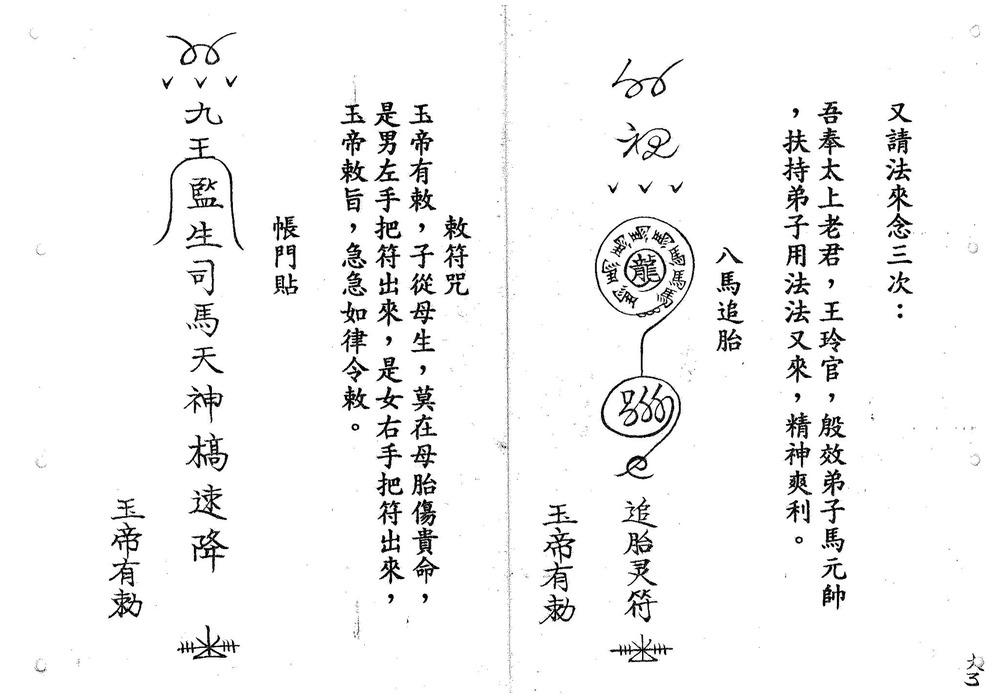 又請法來念三次：
吾奉太上老君，王玲官，殷效弟子馬元帥
，扶持弟子用法法又來，精神爽利。
八馬追胎
龍
追胎灵符
玉帝有勅
敕符咒
玉帝有敕，子從母生，莫在母胎傷貴命，
是男左手把符出來，是女右手把符出來，
玉帝敕旨，急急如律令敕。
帳門貼
九王監生司馬天神槁速降
玉帝有勅